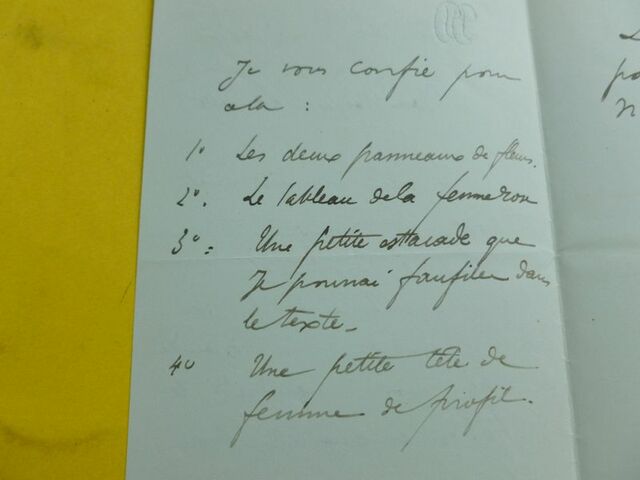 Je vous confie pour
cela :
1º Les deux panneaux de fleurs.
2º. Le tableau de la
3º = Une petite estacade que
Je pourrai faufiler dans
le texte_
4º Une petite tête de
femme de profil.